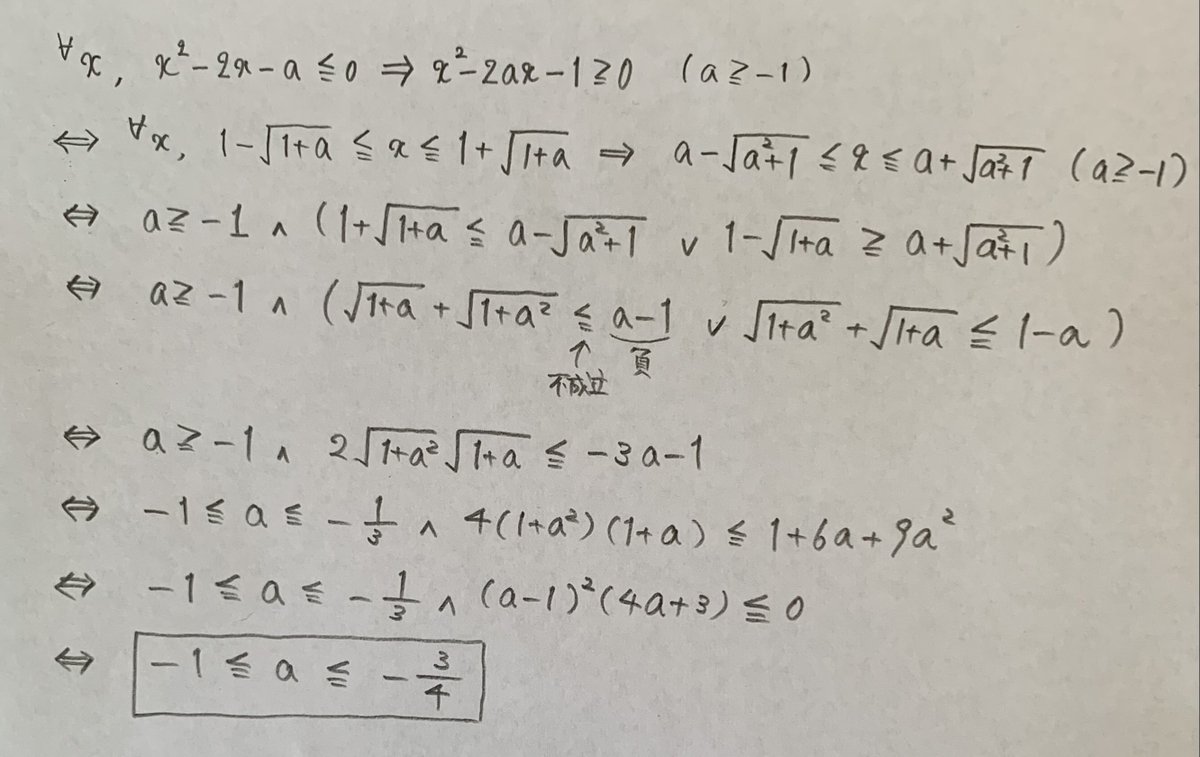 ∀x, x²-2x-a≦0 ⇒ x²-2ax-1≧0 (a≧-1)
⇔ ∀x, 1-√(1+a) ≦ x ≦ 1+√(1+a) ⇒ a-√(a²+1) ≦ x ≦ a+√(a²+1) (a≧-1)
⇔ a≧-1 ∧ (1+√(1+a) ≦ a-√(a²+1) ∨ 1-√(1+a) ≧ a+√(a²+1))
⇔ a≧-1 ∧ (√(1+a)+√(1+a²) ≦ a-1 ∨ √(1+a²)+√(1+a) ≦ 1-a)
↑ 負
不成立
⇔ a≧-1 ∧ 2√(1+a²)√(1+a) ≦ -3a-1
⇔ -1≦a≦-1/3 ∧ 4(1+a²)(1+a) ≦ 1+6a+9a²
⇔ -1≦a≦-1/3 ∧ (a-1)²(4a+3)≦0
⇔ -1≦a≦-3/4